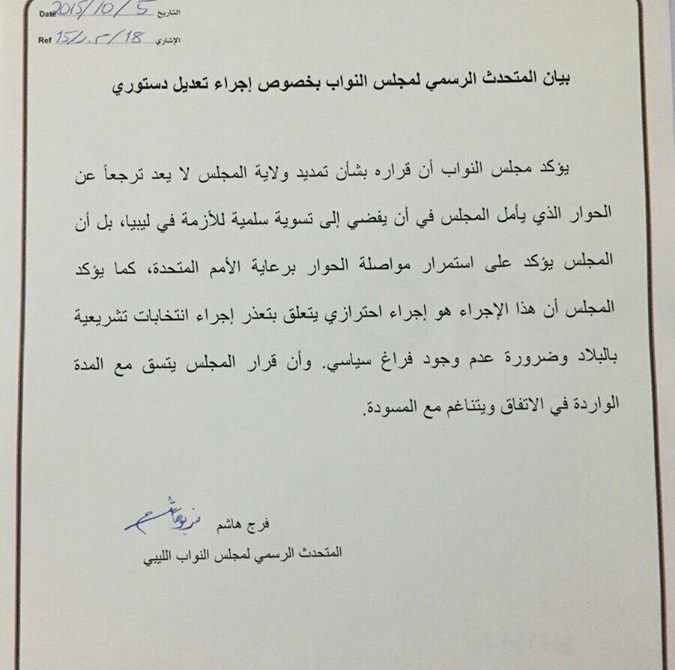 Date 2015/10/5 التاريخ
Ref 15/م.ر/18 الإشاري
بيان المتحدث الرسمي لمجلس النواب بخصوص إجراء تعديل دستوري
يؤكد مجلس النواب أن قراره بشأن تمديد ولاية المجلس لا يعد ترجعاً عن
الحوار الذي يأمل المجلس في أن يفضي إلى تسوية سلمية للأزمة في ليبيا، بل أن
المجلس يؤكد على استمرار مواصلة الحوار برعاية الأمم المتحدة، كما يؤكد
المجلس أن هذا الإجراء هو إجراء احترازي يتعلق بتعذر إجراء انتخابات تشريعية
بالبلاد وضرورة عدم وجود فراغ سياسي. وأن قرار المجلس يتسق مع المدة
الواردة في الاتفاق ويتناغم مع المسودة.
فرج هاشم
المتحدث الرسمي لمجلس النواب الليبي